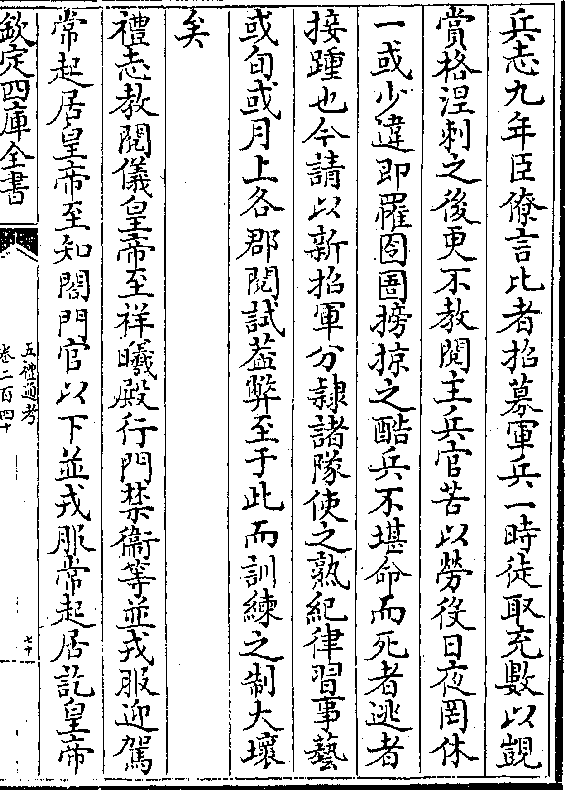 兵志九年臣僚言比者招募軍兵一時徒取充數以覬
賞格涅刺之後更不教閱主兵官苦以勞役日夜罔休
一或少違即羅囹圄搒掠之酷兵不堪命而死者逃者
接踵也今請以新招軍分隷諸隊使之熟紀律習事藝
或旬或月上各郡閱試葢弊至于此而訓練之制大壞
矣
禮志教閱儀皇帝至祥曦殿行門禁衞等並戎服迎駕
常起居皇帝至知閤門官以下並戎服常起居訖皇帝
欽定四庫全書
五禮通考
卷二百四十
七十